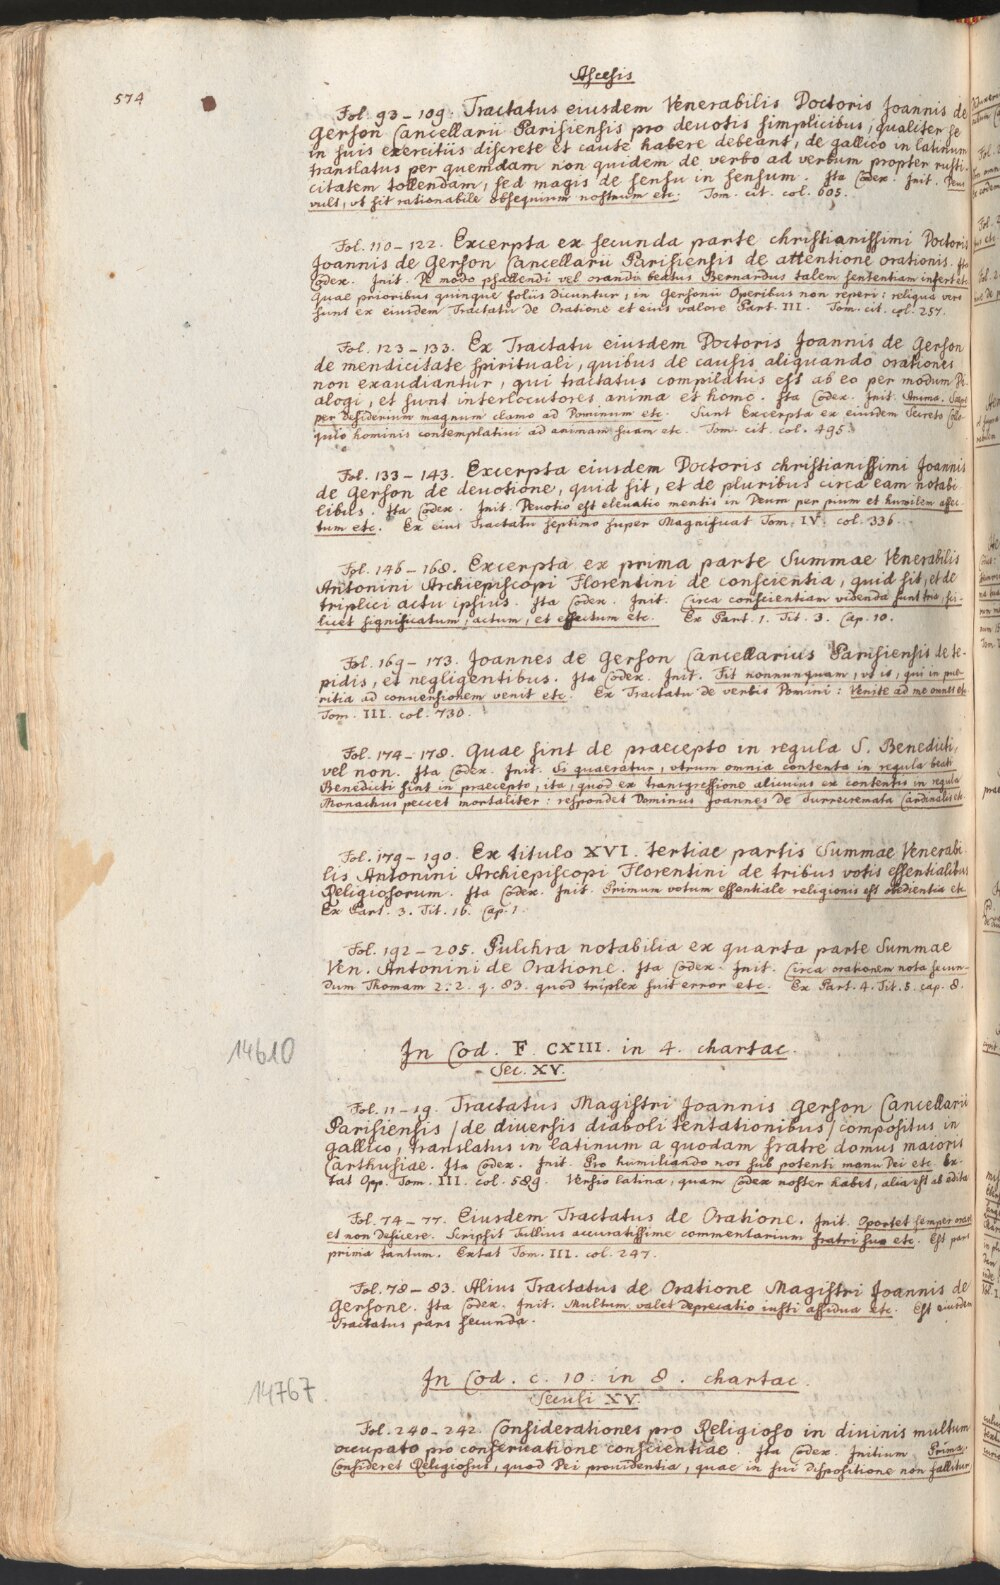 Ascesis
574
Fol. 93–109. Tractatus eiusdem Venerabilis Doctoris Joannis de
Gerson Cancellarii Parisiensis pro deuotis simplicibus, qualiter se
in suis exercitiis discrete et caute habere debeant, de gallico in latinum
translatus per quemdam non quidem de verbo ad verbum propter rusti-
citatem tollendam, sed magis de sensu in sensum. Ita Codex. Init. Deus
vult, vt sit rationabile obsequium nostrum etc. Tom. cit. col. 605.
Fol. 110–122. Excerpta ex secunda parte christianissimi Doctoris
Joannis de Gerson Cancellarii Parisiensis de attentione orationis. Ita
Codex. Init. De modo psallendi vel orandi beatus Bernardus talem sententiam infert etc.
Quae prioribus quinque foliis dicuntur, in Gersonii Operibus non reperi: reliqua vero
sunt ex eiusdem Tractatu de Oratione et eius valore Part. III. Tom. cit. col. 257.
Fol. 123–133. Ex Tractatu eiusdem Doctoris Joannis de Gerson
de mendicitate spirituali, quibus de causis aliquando orationes
non exaudiantur, qui tractatus compilatus est ab eo per modum Di-
alogi, et sunt interlocutores anima et homo. Ita Codex. Init. Anima. Saepe
per desiderium magnum clamo ad Dominum etc. Sunt Excerpta ex eiusdem Secreto Collo-
quio hominis contemplatiui ad animam suam etc. Tom. cit. col. 495.
Fol. 133–143. Excerpta eiusdem Doctoris christianissimi Joannis
de Gerson de deuotione, quid sit, et de pluribus circa eam notabi-
libus. Ita Codex. Init. Deuotio est eleuatio mentis in Deum per pium et humilem affec-
tum etc. Ex eius Tractatu septimo super Magnificat Tom. IV. col. 336.
Fol. 146–168. Excerpta ex prima parte Summae Venerabilis
Antonini Archiepiscopi Florentini de conscientia, quid sit, et de
triplici actu ipsius. Ita Codex. Init. Circa conscientiam videnda sunt tria, sci-
licet significatum, actum, et effectum etc. Ex Part. 1. Tit. 3. Cap. 10.
Fol. 169–173. Joannes de Gerson Cancellarius Parisiensis de te-
pidis, et negligentibus. Ita Codex. Init. Fit nonnunquam, vt is, qui in pue-
ritia ad conuersionem venit etc. Ex Tractatu de verbis Domini: Venite ad me omnes etc.
Tom. III. col. 730.
Fol. 174–178. Quae sint de praecepto in regula S. Benedicti,
vel non. Ita Codex. Init. Si quaeratur, vtrum omnia contenta in regula beati
Benedicti sint in praecepto, ita, quod ex transgressione alicuius ex contentis in regula
Monachus peccet mortaliter: respondet Dominus Joannes de Turrecremata Cardinalis etc.
Fol. 179–190. Ex titulo XVI. tertiae partis Summae Venerabi-
lis Antonini Archiepiscopi Florentini de tribus votis essentialibus
Religiosorum. Ita Codex. Init. Primum votum essentiale religionis est obedientia etc.
Ex Part. 3. Tit. 16. Cap. 1.
Fol. 192–205. Pulchra notabilia ex quarta parte Summae
Ven. Antonini de Oratione. Ita Codex. Init. Circa orationem nota secun-
dum Thomam 2. 2. q. 83. quod triplex fuit error etc. Ex Part. 4. Tit. 5. cap. 8.
14610
In Cod. F. CXIII. in 4. chartac.
Sec. XV.
Fol. 11–19. Tractatus Magistri Joannis Gerson Cancellarii
Parisiensis, de diuersis diaboli tentationibus, compositus in
gallico, translatus in latinum a quodam fratre domus maioris
Carthusiae. Ita Codex. Init. Pro humiliando nos sub potenti manu Dei etc. Ex-
tat Opp. Tom. III. col. 589. Versio latina, quam Codex noster habet, alia est ab edita
Fol. 74–77. Eiusdem Tractatus de Oratione. Init. Oportet semper orare
et non deficere. Scripsit Tullius accuratissime commentarium fratri suo etc. Est pars
prima tantum. Extat Tom. III. col. 247.
Fol. 78–83. Alius Tractatus de Oratione Magistri Joannis de
Gersone. Ita Codex. Init. Multum valet deprecatio iusti assidua etc. Est eiusdem
Tractatus pars secunda.
14767.
In Cod. c. 10. in 8. chartac.
Seculi XV.
Fol. 240–242. Considerationes pro Religioso in diuinis multum
occupato pro conseruatione conscientiae. Ita Codex. Initium Primo.
Consideret Religiosus, quod Dei prouidentia, quae in sui dispositione non fallitur